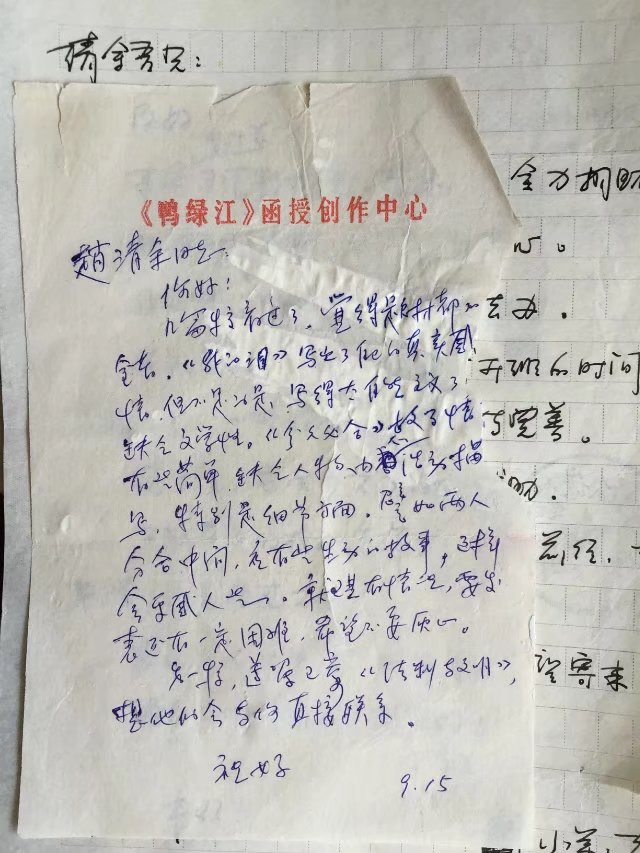 清余吾兄：
《鸭绿江》函授创作中心
趙清余同志：
你好！
几篇稿看过了，觉得题材都
《我的泪》写出了自己的真实感
情，但不足的是，写得太自然主义了
缺乏文学性。《分久必合》故事情
有些简单，缺乏人物内活动描
写，特别是细节方面。譬如两人
分合中间，应有些生动的故事，这样
会更感人些。就是有情况，要发
表还有一定困难，希望不要灰心。
另一稿，《法制文明》，
想他们会与你直接联系。
祝好
9.15
全力相助
心。
去办。
开班的时间
完善。
助。
前经，
望寄来
小羊，